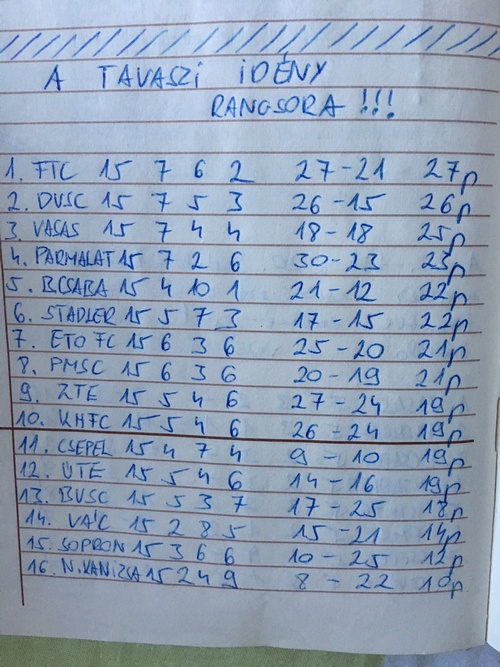 A TAVASZI IDÉNY
RANGSORA !!!
1. FTC 15 7 6 2 27-21 27p
2. DVSC 15 7 5 3 26-15 26p
3. VASAS 15 7 4 4 18-18 25p
4. PARMALAT 15 7 2 6 30-23 23p
5. B.CSABA 15 4 10 1 21-12 22p
6. STADLER 15 5 7 3 17-15 22p
7. ETO FC 15 6 3 6 25-20 21p
8. PMSC 15 6 3 6 20-19 21p
9. ZTE 15 5 4 6 27-24 19p
10. KHFC 15 5 4 6 26-24 19p
11. CSEPEL 15 4 7 4 9-10 19p
12. UTE 15 5 4 6 14-16 19p
13. BVSC 15 5 3 7 17-25 18p
14. VÁC 15 2 8 5 15-21 14p
15. SOPRON 15 3 6 6 10-25 12p
16. N.KANIZSA 15 2 4 9 8-22 10p